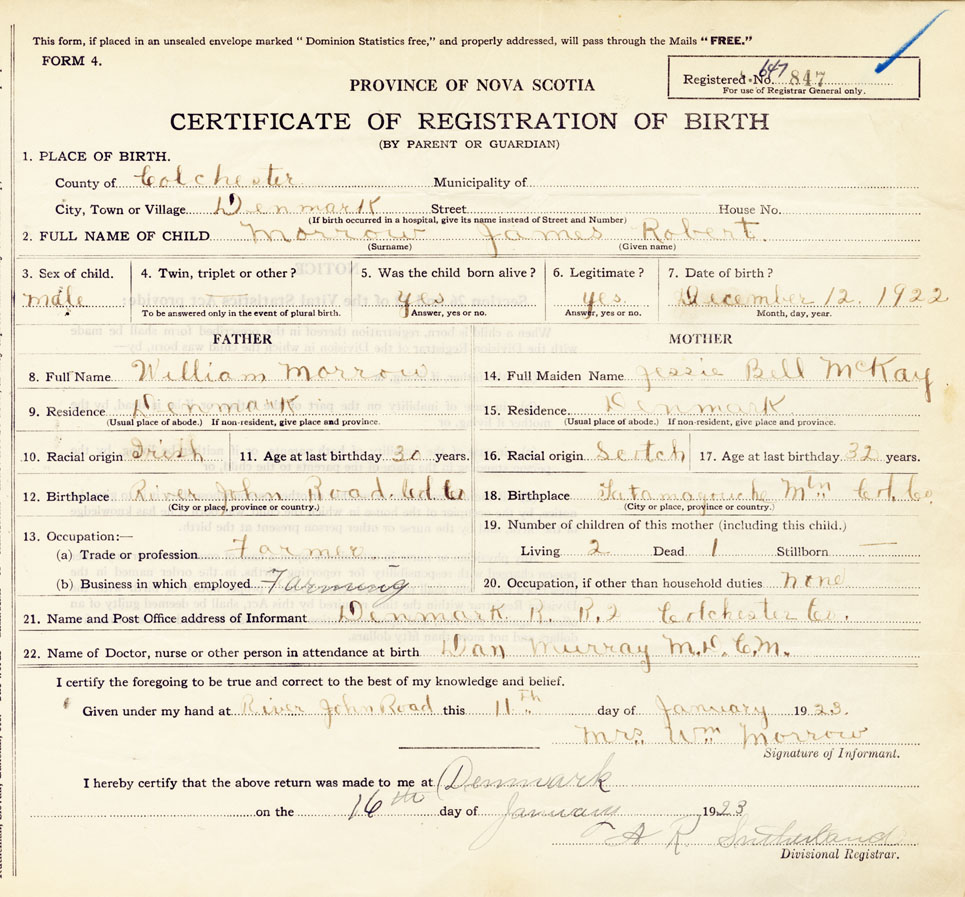 This form, if placed in an unsealed envelope marked “Dominion Statistics free,” and properly addressed, will pass through the Mails “FREE.”
FORM 4.
Registered No. 647 847
For use of Registrar General only.
PROVINCE OF NOVA SCOTIA
CERTIFICATE OF REGISTRATION OF BIRTH
(BY PARENT OR GUARDIAN)
1. PLACE OF BIRTH.
County of Colchester Municipality of
City, Town or Village Denmark Street House No.
(If birth occurred in a hospital, give its name instead of Street and Number)
2. FULL NAME OF CHILD Morrow James Robert.
(Surname) (Given name)
3. Sex of child. 4. Twin, triplet or other? 5. Was the child born alive? 6. Legitimate? 7. Date of birth?
male yes yes. December 12. 1922
To be answered only in the event of plural birth. Answer, yes or no. Answer, yes or no. Month, day, year.
FATHER MOTHER
8. Full Name William Morrow 14. Full Maiden Name Jessie Bell McKay
9. Residence Denmark 15. Residence Denmark
(Usual place of abode.) If non-resident, give place and province. (Usual place of abode.) If non-resident, give place and province.
10. Racial origin Irish 11. Age at last birthday 30 years. 16. Racial origin Scotch 17. Age at last birthday 32 years.
12. Birthplace River John Road. Col Co 18. Birthplace Tatamagouche Mtn Col. Co.
(City or place, province or country.) (City or place, province or country.)
13. Occupation:— 19. Number of children of this mother (including this child.)
(a) Trade or profession Farmer Living 2 Dead 1 Stillborn —
(b) Business in which employed Farming 20. Occupation, if other than household duties none
21. Name and Post Office address of Informant Denmark R. R. 2 Colchester Co.
22. Name of Doctor, nurse or other person in attendance at birth Dan Murray M.D. C.M.
I certify the foregoing to be true and correct to the best of my knowledge and belief.
Given under my hand at River John Road this 11th day of January 1923.
Mrs Wm Morrow
Signature of Informant.
I hereby certify that the above return was made to me at Denmark
on the 16th day of January 1923
A R Sutherland
Divisional Registrar.